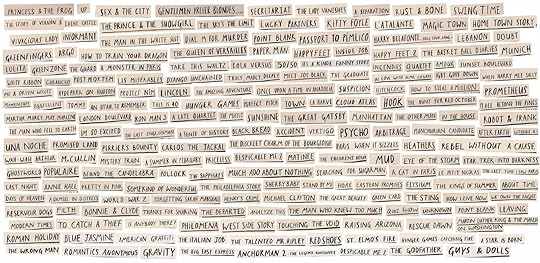 PRINCESS & THE FROG UP SEX & THE CITY GENTLEMEN PREFER BLONDES... SECRETARIAT THE LADY VANISHES A SEPARATION RUST & BONE SWING TIME
THE STORY OF VERNON & IRENE CASTLE THE PRINCE & THE SHOWGIRL THE SKY'S THE LIMIT LUCKY PARTNERS KITTY FOYLE L'ATALANTE MAGIC TOWN HOME TOWN STORY
VIVACIOUS LADY INFORMANT THE MAN IN THE WHITE SUIT DIAL M FOR MURDER POINT BLANK PASSPORT TO PIMLICO HARRY BELAFONTE LEBANON DOUBT
GREENFINGERS ARGO HOW TO TRAIN YOUR DRAGON THE QUEEN OF VERSAILLES PAPER MAN HAPPY FEET INSIDE JOB HAPPY FEET 2 THE BASKET BALL DIARIES MUNICH
LOLITA GREENZONE THE GUARD A MONSTER IN PARIS TAKE THIS WALTZ LOLA VERSUS 50/50 ITS A KINDA FUNNY STORY INCENDIES QUARTET AMOUR SUNSET BOULEVARD
WHITE RIBBON TABARNCO POST MORTEM LES MISERABLES DJANGO UNCHAINED TRULY, MADLY, DEEPLY MEET JOE BLACK THE GRADUATE GUY GOES DOWN WHEN HARRY MET SILLY
ME & ORSON WELLES HYDEPARK ON HUDSON PROJECT NIM LINCOLN THE AMAZING ADVENTURE ONCE UPON A TIME IN ANATOLIA SUSPICION HITCHCOCK HOW TO STEAL A MILLION PROMETHEUS
EGGCELLENT TOMMY AN AFFAIR TO REMEMBER THIS IS 40 HUNGER GAMES PERFECT PITCH TOWN LA RAFLE CLOUD ATLAS HOOK THE HUNT FOR RED OCTOBER PLACE BEYOND THE PINES
MARTHA MARCY MAY MARLENE LONDON BOULEVARD IRON MAN 3 A LATE QUARTET SUNSHINE THE GREAT GATSBY MANHATTAN THE OTHER MAN IN THE HOUSE ROBOT & FRANK
THE MAN WHO FELL TO EARTH I'M SO EXCITED THE LAST ENGLISHMAN A SENSE OF HISTORY BLACK BREAD ACCIDENT VERTIGO PSYCHO ARBITRAGE MANCHURIAN CANDIDATE AFTER EARTH
UNA NOCHE PROMISED LAND PERRIER'S BOUNTY CARLOS THE JACKAL THE DISCREET CHARM OF THE BOURGEOISIE PARIS WHEN IT SIZZLES HEATHERS REBEL WITHOUT A CAUSE
WAH-WAH ARTHUR McCULLIN MYSTERY TRAIN A SUMMER IN FEBRUARY FRECKLES DESPICABLE ME 2 MATINEE THE CHILDRENS HOUR MUD EYE OF THE STORM STAR TREK INTO DARKNESS
GHOSTWORLD POPULAIRE BEHIND THE CANDELABRA POLLOCK THE SAPPHIRES MUCH ADO ABOUT NOTHING SEARCHING FOR SUGARMAN A CAT IN PARIS LE PETIT NICOLAS
LAST NIGHT ANNIE HALL PRETTY IN PINK SOME KIND OF WONDERFUL THE PHILADELPHIA STORY SHERRYBABY STAND BY ME HOWE EASTERN PROMISES ELYSIUM THE KINGS OF SUMMER ABOUT TIME
DAYS OF HEAVEN DAMSEL IN DISTRESS WORLD WAR Z FORGETTING SARAH MARSHALL HENRY'S CRIME MICHAEL CLAYTON THE GREAT BEAUTY CARS THE STING HOW I LIVE NOW WE OWN THE NIGHT
RESERVOIR DOGS FILTH BONNIE & CLYDE THANKS FOR SHARING THE DEPARTED ANALYZE THIS THE MAN WHO KNEW TOO MUCH QUIZ SHOW UNKNOWN MARTIN LUTHER KING POINT BLANK LEAVING
MODERN TIMES TO CATCH A THIEF IS ANYBODY THERE? PHILOMENA WEST SIDE STORY TOUCHING THE VOID RAISING ARIZONA RESCUE DAWN MARCH ON WASHINGTON
ROMAN HOLIDAY BLUE JASMINE AMERICAN GRAFFITI THE ITALIAN JOB THE TALENTED MR. RIPLEY RED SHOES ST. ELMO'S FIRE HUNGER GAMES CATCHING FIRE A STAR IS BORN
THE WRONG MAN ROMANTICS ANONYMOUS GRAVITY THE BIG EASY EXPRESS ANCHORMAN 2 THE LEGEND CONTINUES DESPICABLE ME 2 THE GODFATHER GUYS & THE MOVIES